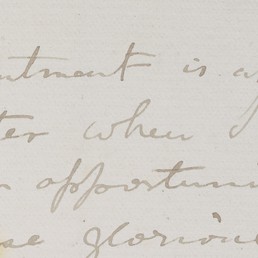 ntment is a
ter when I
opportuni
se glorious